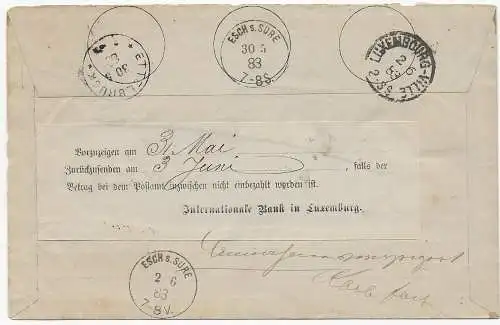 ETTELBRUCK
30 5
83
ESCH s. SURE
30 5
83
7-8S.
LUXEMBOURG-VILLE
2 6
83
Vorzuzeigen am 31 Mai
Zurückzusenden am 3 Juni falls der
Betrag bei dem Postamt inzwischen nicht einbezahlt worden ist.
Internationale Bank in Luxemburg.
ESCH s. SURE
2 6
83
7-8V.